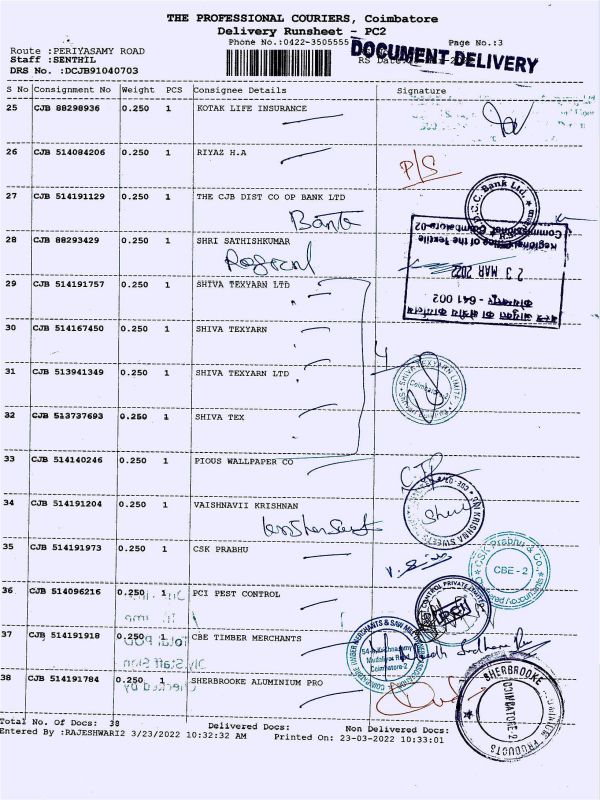 THE PROFESSIONAL COURIERS, Coimbatore
Delivery Runsheet - PC2
Phone No.:0422-3505555 Page No.:3
DOCUMENT DELIVERY
Route :PERIYASAMY ROAD
Staff :SENTHIL
DRS No. :DCJB91040703
S No Consignment No Weight PCS Consignee Details Signature
25 CJB 88298936 0.250 1 KOTAK LIFE INSURANCE
26 CJB 514084206 0.250 1 RIYAZ H.A
P/S
27 CJB 514191129 0.250 1 THE CJB DIST CO OP BANK LTD
Bank
28 CJB 88293429 0.250 1 SHRI SATHISHKUMAR
Regional Office of the Textile
Commissioner, Coimbatore-02
23 MAR 2022
641 002
29 CJB 514191757 0.250 1 SHIVA TEXYARN LTD
30 CJB 514167450 0.250 1 SHIVA TEXYARN
31 CJB 513941349 0.250 1 SHIVA TEXYARN LTD
4
SHIVA TEXYARN LIMITED
Coimbatore-2
32 CJB 513737693 0.250 1 SHIVA TEX
33 CJB 514140246 0.250 1 PIOUS WALLPAPER CO
34 CJB 514191204 0.250 1 VAISHNAVII KRISHNAN
SRI KRISHNA SWEETS
35 CJB 514191973 0.250 1 CSK PRABHU
CSK Prabhu & Co.
CBE - 2
36 CJB 514096216 0.250 1 PCI PEST CONTROL
CONTROL PRIVATE LIMITED
PCI
37 CJB 514191918 0.250 1 CBE TIMBER MERCHANTS
COIMBATORE TIMBER MERCHANTS & SAW MILL
Mudaliyar Road
Coimbatore-2
Total POD
Dly.Staff Sign
Checked by
38 CJB 514191784 0.250 1 SHERBROOKE ALUMINIUM PRO
SHERBROOKE
PRODUCTS
COIMBATORE-2
Total No. of Docs: 38 Delivered Docs: Non Delivered Docs:
Entered By :RAJESHWARI2 3/23/2022 10:32:32 AM Printed On: 23-03-2022 10:33:01